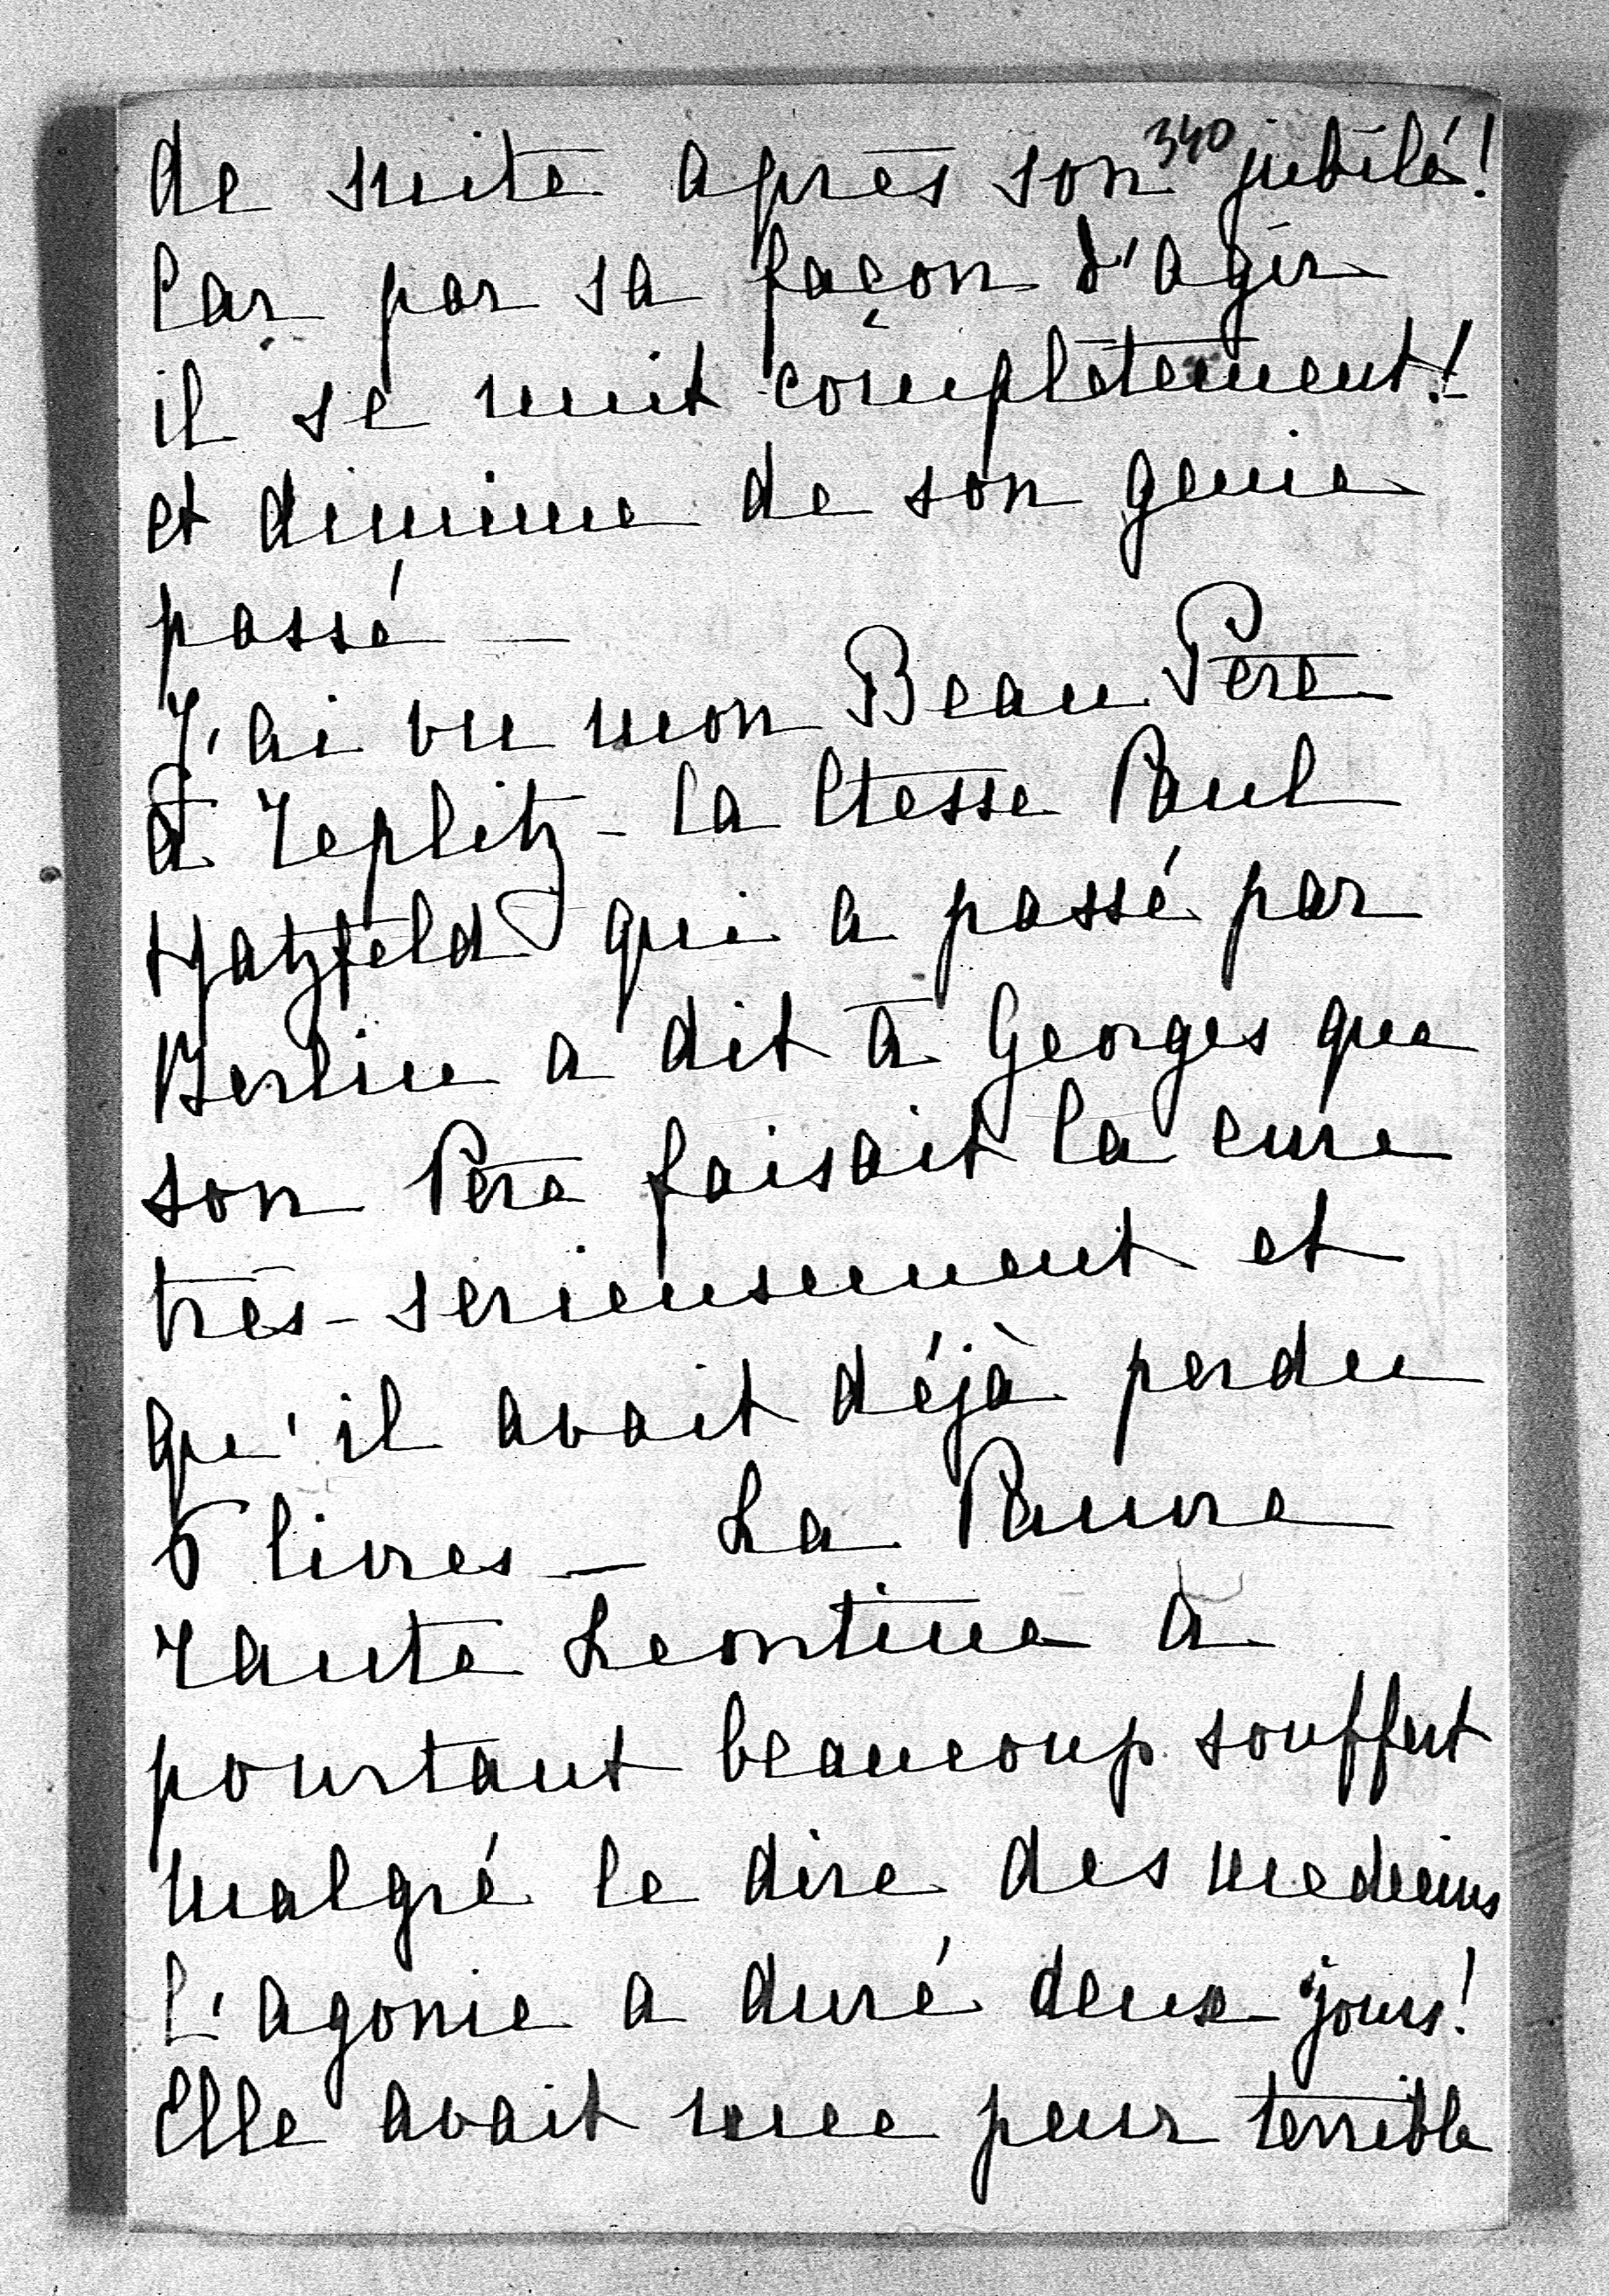 340
de suite après son jubilé!
Car par sa façon d'agir
il se nuit complètement!
et diminue de son genie
passé —
J'ai vu mon Beau Père
à Teplitz - la Ctesse Paul
Hatzfeld qui a passé par
Berlin a dit à Georges que
son Père faisait la cure
très-serieusement et
qu'il avait déjà perdu
6 livres — La Pauvre
Tante Leontine a
pourtant beaucoup souffert
malgré le dire des medecins
l'agonie a duré deux jours!
Elle avait une peur terrible